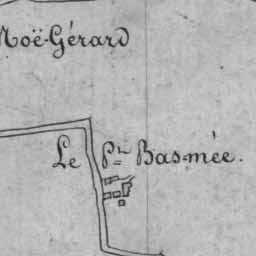 Noë-Gérard
Le Pt. Basmée.